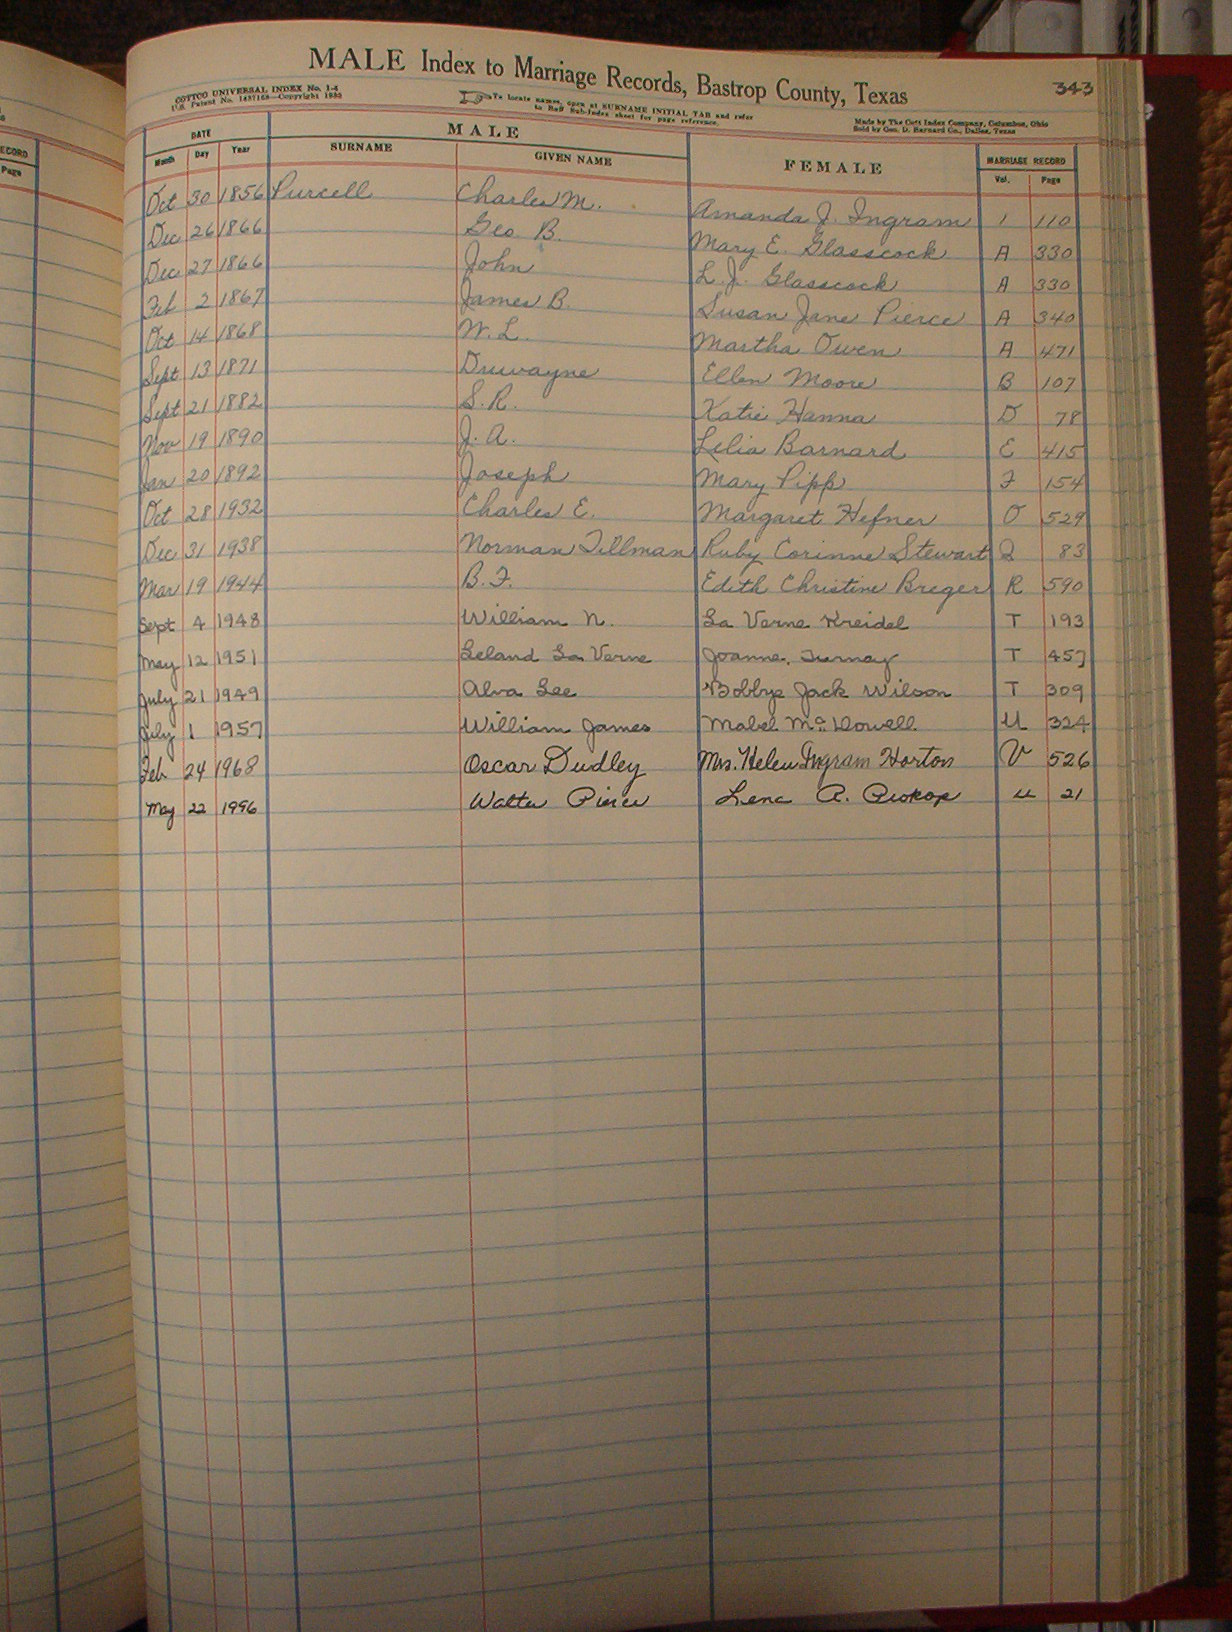 MALE Index to Marriage Records, Bastrop County, Texas
343
COTTCO UNIVERSAL INDEX No. 1-4
U.S. Patent No. 1457168—Copyright 1935
To locate names, open at SURNAME INITIAL TAB and refer
to Red Sub-Index sheet for page reference.
Made by The Cott Index Company, Columbus, Ohio
Sold by Geo. D. Barnard Co., Dallas, Texas
DATE MALE FEMALE MARRIAGE RECORD
Month Day Year SURNAME GIVEN NAME Vol. Page
Oct 30 1856 Purcell Charles M. Amanda J. Ingram 1 110
Dec 26 1866 Geo. B. Mary E. Glasscock A 330
Dec 27 1866 John L. J. Glasscock A 330
Feb 2 1867 James B. Susan Jane Pierce A 340
Oct 14 1868 W. L. Martha Owen A 471
Sept 13 1871 Druwayne Ellen Moore B 107
Sept 21 1882 S. R. Katie Hanna D 78
Nov 19 1890 J. A. Lelia Barnard E 415
Jan 20 1892 Joseph Mary Pipp F 154
Oct 28 1932 Charles E. Margaret Hefner O 529
Dec 31 1938 Norman Tillman Ruby Corinne Stewart Q 83
Mar 19 1944 B. F. Edith Christine Breger R 590
Sept 4 1948 William N. La Verne Kreidel T 193
May 12 1951 Leland La Verne Joanne T 457
July 21 1949 Alva Lee Bobbye Jack Wilson T 309
July 1 1957 William James Mabel McDowell U 324
Feb 24 1968 Oscar Dudley Mrs. Helen Ingram Horton V 526
May 22 1996 Walter Pierce Lena A. Prokop u 21
ECORD
Page